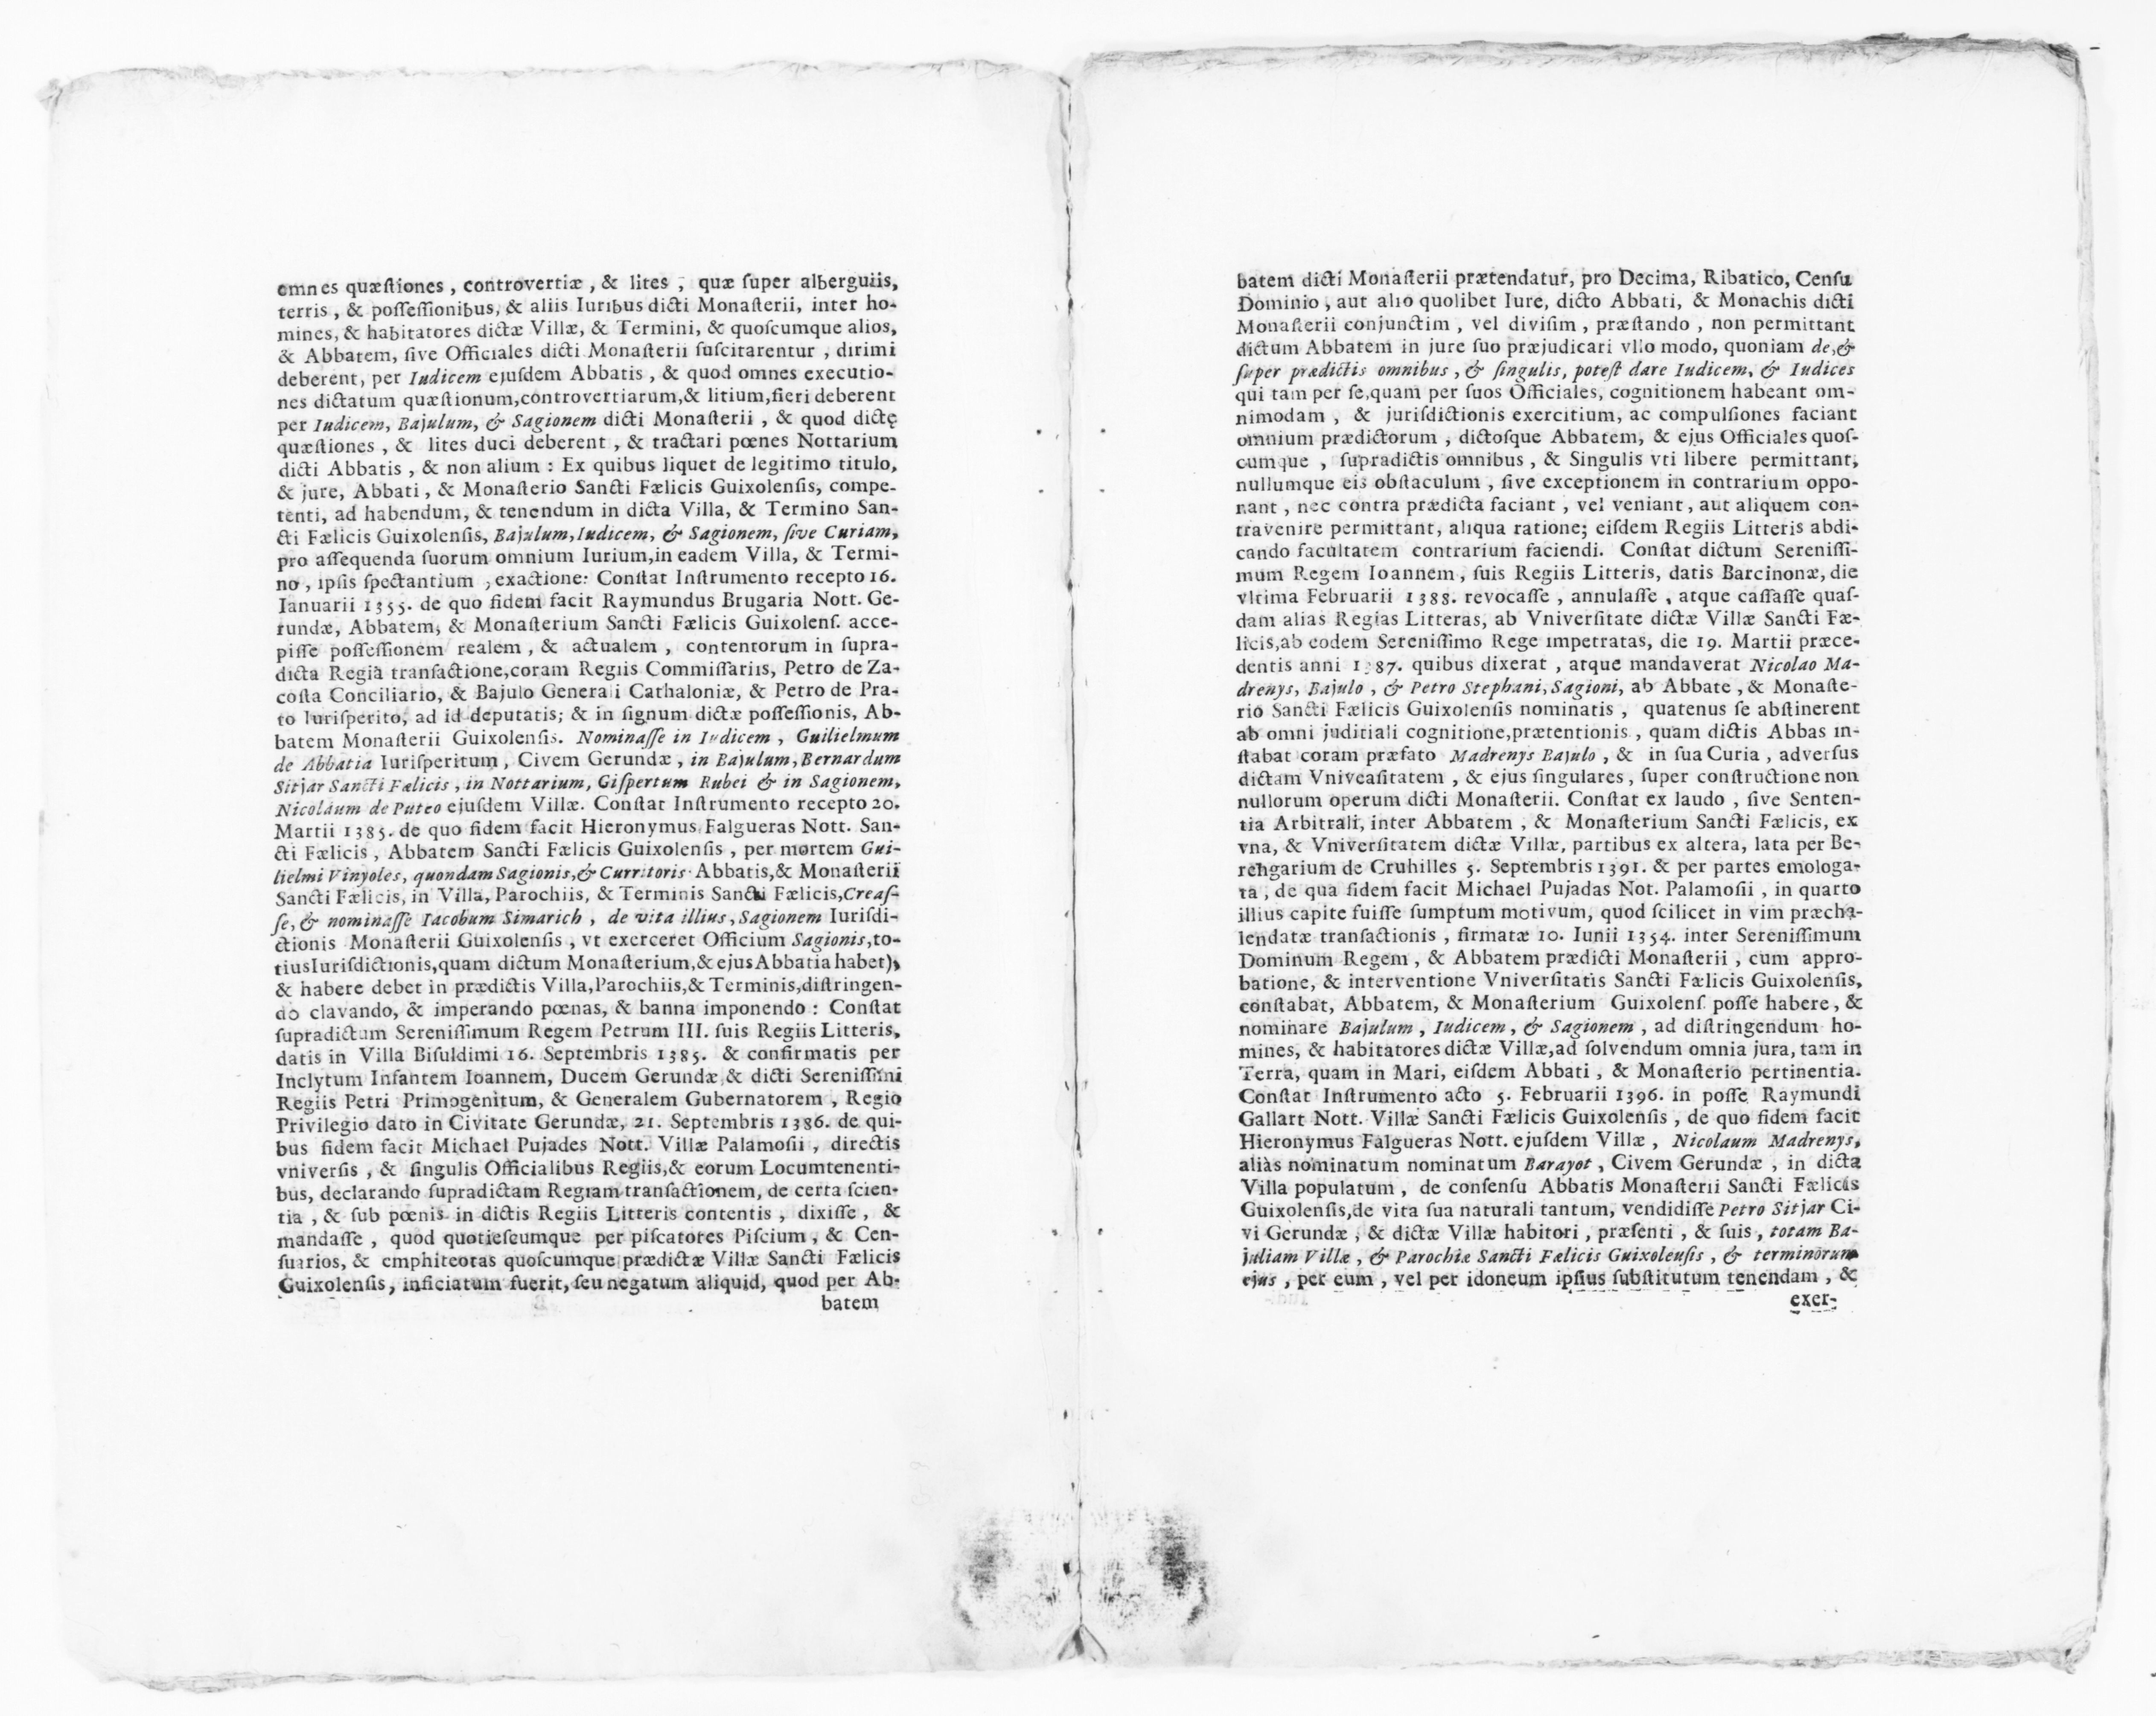 omnes quæſtiones , controvertiæ , & lites , quæ ſuper alberguiis,
terris , & poſſeſſionibus, & aliis Iuribus dicti Monaſterii, inter ho-
mines, & habitatores dictæ Villæ, & Termini, & quoſcumque alios,
& Abbatem, ſive Officiales dicti Monaſterii ſuſcitarentur , dirimi
deberent, per Iudicem ejuſdem Abbatis , & quod omnes executio-
nes dictatum quæſtionum,controvertiarum,& litium,fieri deberent
per Iudicem, Bajulum, & Sagionem dicti Monaſterii , & quod dictę
quæſtiones , & lites duci deberent , & tractari pœnes Nottarium
dicti Abbatis , & non alium : Ex quibus liquet de legitimo titulo,
& jure, Abbati , & Monaſterio Sancti Fælicis Guixolenſis, compe-
tenti, ad habendum, & tenendum in dicta Villa, & Termino San-
cti Fælicis Guixolenſis, Bajulum,Iudicem, & Sagionem, ſive Curiam,
pro aſſequenda ſuorum omnium Iurium,in eadem Villa, & Termi-
no , ipſis ſpectantium , exactione: Conſtat Inſtrumento recepto 16.
Ianuarii 1355. de quo fidem facit Raymundus Brugaria Nott. Ge-
rundæ, Abbatem, & Monaſterium Sancti Fælicis Guixolenſ. acce-
piſſe poſſeſſionem realem , & actualem , contentorum in ſupra-
dicta Regia tranſactione,coram Regiis Commiſſariis, Petro de Za-
coſta Conciliario, & Bajulo Generali Cathaloniæ, & Petro de Pra-
to Iuriſperito, ad id deputatis; & in ſignum dictæ poſſeſſionis, Ab-
batem Monaſterii Guixolenſis. Nominaſſe in Iudicem , Guilielmum
de Abbatia Iuriſperitum , Civem Gerundæ , in Bajulum, Bernardum
Sitjar Sancti Fælicis , in Nottarium, Giſpertum Rubei & in Sagionem,
Nicolaum de Puteo ejuſdem Villæ. Conſtat Inſtrumento recepto 20.
Martii 1385. de quo fidem facit Hieronymus Falgueras Nott. San-
cti Fælicis , Abbatem Sancti Fælicis Guixolenſis , per mortem Gui-
lielmi Vinyoles, quondam Sagionis,& Curritoris Abbatis,& Monaſterii
Sancti Fælicis, in Villa, Parochiis, & Terminis Sancti Fælicis,Creaſ-
ſe, & nominaſſe Iacobum Simarich , de vita illius, Sagionem Iuriſdi-
ctionis Monaſterii Guixolenſis , vt exerceret Officium Sagionis,to-
tiusIuriſdictionis,quam dictum Monaſterium,& ejus Abbatia habet),
& habere debet in prædictis Villa,Parochiis,& Terminis,diſtringen-
do clavando, & imperando pœnas, & banna imponendo : Conſtat
ſupradictum Sereniſſimum Regem Petrum III. ſuis Regiis Litteris,
datis in Villa Biſuldimi 16. Septembris 1385. & confirmatis per
Inclytum Infantem Ioannem, Ducem Gerundæ,& dicti Sereniſſimi
Regiis Petri Primogenitum, & Generalem Gubernatorem , Regio
Privilegio dato in Civitate Gerundæ, 21. Septembris 1386. de qui-
bus fidem facit Michael Pujades Nott. Villæ Palamoſii , directis
vniverſis , & ſingulis Officialibus Regiis,& eorum Locumtenenti-
bus, declarando ſupradictam Regiam tranſactionem, de certa ſcien-
tia , & ſub pœnis in dictis Regiis Litteris contentis , dixiſſe , &
mandaſſe , quod quotieſcumque per piſcatores Piſcium, & Cen-
ſuarios, & emphiteotas quoſcumque prædictæ Villæ Sancti Fælicis
Guixolenſis, inficiatum fuerit, ſeu negatum aliquid, quod per Ab-
batem
batem dicti Monaſterii prætendatur, pro Decima, Ribatico, Cenſu
Dominio , aut alio quolibet Iure, dicto Abbati, & Monachis dicti
Monaſterii conjunctim , vel diviſim , præſtando , non permittant
dictum Abbatem in jure ſuo præjudicari vllo modo, quoniam de,&
ſuper prædictis omnibus , & ſingulis, poteſt dare Iudicem, & Iudices
qui tam per ſe,quam per ſuos Officiales, cognitionem habeant om-
nimodam , & juriſdictionis exercitium, ac compulſiones faciant
omnium prædictorum , dictoſque Abbatem, & ejus Officiales quoſ-
cumque , ſupradictis omnibus , & Singulis vti libere permittant,
nullumque eis obſtaculum , ſive exceptionem in contrarium oppo-
nant , nec contra prædicta faciant , vel veniant , aut aliquem con-
travenire permittant, aliqua ratione; eiſdem Regiis Litteris abdi-
cando facultatem contrarium faciendi. Conſtat dictum Sereniſſi-
mum Regem Ioannem, ſuis Regiis Litteris, datis Barcinonæ, die
vltima Februarii 1388. revocaſſe , annulaſſe , atque caſſaſſe quaſ-
dam alias Regias Litteras, ab Vniverſitate dictæ Villæ Sancti Fæ-
licis,ab eodem Sereniſſimo Rege impetratas, die 19. Martii præce-
dentis anni 1387. quibus dixerat , atque mandaverat Nicolao Ma-
drenys, Bajulo , & Petro Stephani, Sagioni, ab Abbate , & Monaſte-
rio Sancti Fælicis Guixolenſis nominatis , quatenus ſe abſtinerent
ab omni juditiali cognitione,prætentionis , quam dictis Abbas in-
ſtabat coram præfato Madrenys Bajulo , & in ſua Curia , adverſus
dictam Vniveaſitatem , & ejus ſingulares , ſuper conſtructione non
nullorum operum dicti Monaſterii. Conſtat ex laudo , ſive Senten-
tia Arbitrali, inter Abbatem , & Monaſterium Sancti Fælicis, ex
vna, & Vniverſitatem dictæ Villæ, partibus ex altera, lata per Be-
rengarium de Cruhilles 5. Septembris 1391. & per partes emologa-
ta , de qua fidem facit Michael Pujadas Not. Palamoſii , in quarto
illius capite fuiſſe ſumptum motivum, quod ſcilicet in vim præcha-
lendatæ tranſactionis , firmatæ 10. Iunii 1354. inter Sereniſſimum
Dominum Regem , & Abbatem prædicti Monaſterii , cum appro-
batione, & interventione Vniverſitatis Sancti Fælicis Guixolenſis,
conſtabat, Abbatem, & Monaſterium Guixolenſ. poſſe habere, &
nominare Bajulum , Iudicem , & Sagionem , ad diſtringendum ho-
mines, & habitatores dictæ Villæ,ad ſolvendum omnia jura, tam in
Terra, quam in Mari, eiſdem Abbati , & Monaſterio pertinentia.
Conſtat Inſtrumento acto 5. Februarii 1396. in poſſe Raymundi
Gallart Nott. Villæ Sancti Fælicis Guixolenſis , de quo fidem facit
Hieronymus Falgueras Nott. ejuſdem Villæ , Nicolaum Madrenys,
aliàs nominatum nominatum Barayot , Civem Gerundæ , in dicta
Villa populatum , de conſenſu Abbatis Monaſterii Sancti Fælicis
Guixolenſis,de vita ſua naturali tantum, vendidiſſe Petro Sitjar Ci-
vi Gerundæ , & dictæ Villæ habitori , præſenti , & ſuis , totam Ba-
juliam Villæ , & Parochiæ Sancti Fælicis Guixolenſis , & terminorum
ejus , per eum , vel per idoneum ipſius ſubſtitutum tenendam , &
exer-